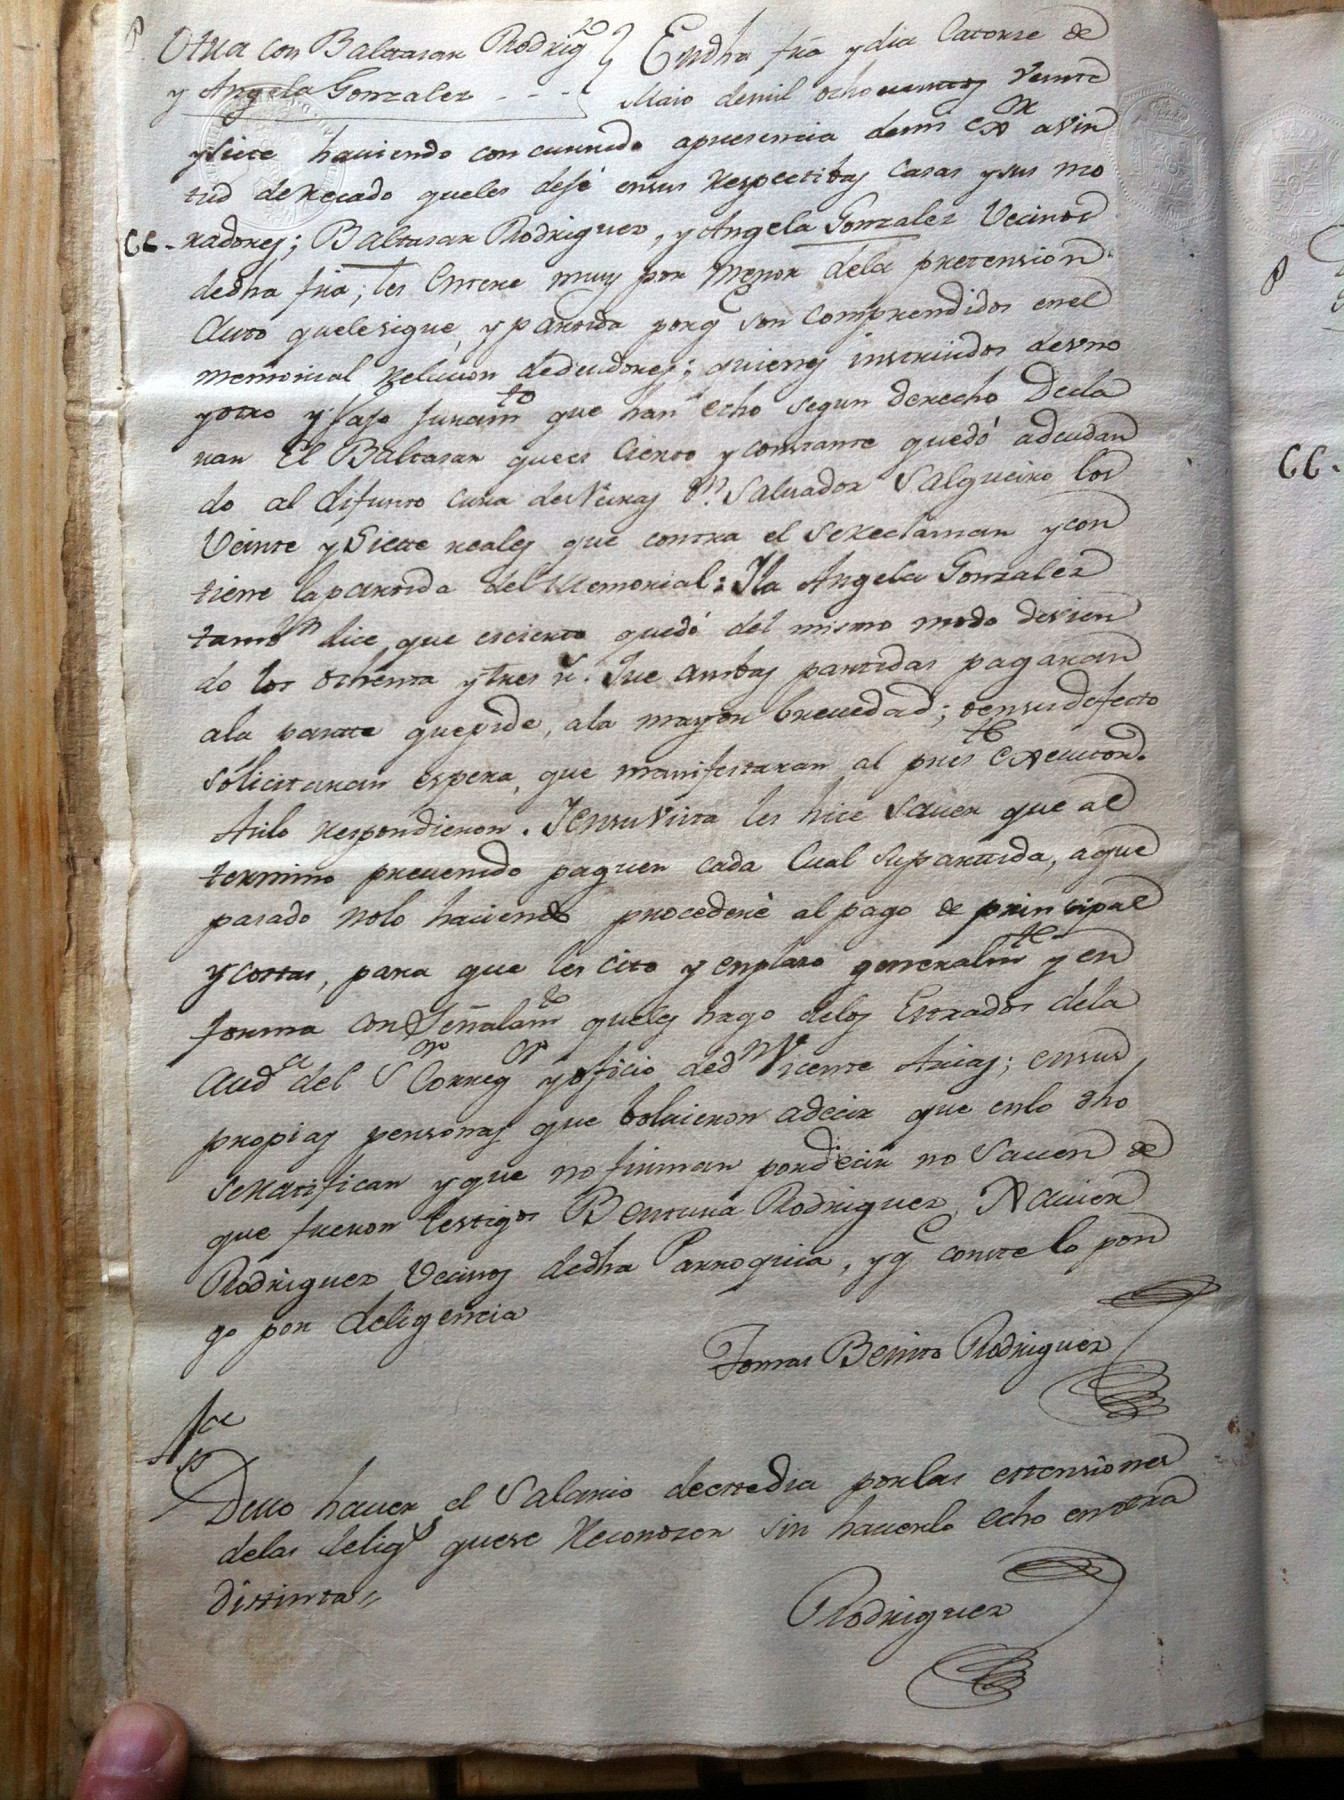 Otra con Baltasar Rodrigz
y Angela Gonzalez - - -
En dha fra y dia Catorse de
Maio de mil ocho cientos Veinte
y siete haviendo con currido a presencia de mi exor a vir
tud de Recado que les dejé en sus Respectibas Casas y sus mo
radores; Baltasar Rodriguez, y Angela Gonzalez Vecinos
de dha fra; les Entere muy por menor de la pretension
Auto que le sigue, y partida porq son Comprendidos en el
memorial Relacion de deudores; quienes instruidos de uno
y otro y bajo Juramto que han echo segun derecho Decla
ran El Baltasar que es Cierto y constante quedó adeudan
do al difunto Cura de Neiras Dn. Salvador Salgueiro los
Veinte y Siette reales que contra el se Reclaman y con
tiene la partida del Memorial: Y la Angela Gonzalez
tamvn dice que es cierto quedó del mismo modo devien
do los ochenta y tres rs. Que ambas partidas pagaran
a la partte que pide, a la mayor brevedad; o en su defecto
solicitaran espera, que manifestaran al preste Executor.
Asilo Respondieron. Y en su Vista les hice Saver que al
termino prevenido paguen cada Cual su partida, a que
pasado no lo haciendo procederé al pago de principal
y costas, para que les cito y enplazo generalmte y en
forma con Señalamto que les hago de los Estrados de la
Auda del Sor Corregor y oficio de dn Vicente Arias; en sus
propias personas que bolvieron a decir que en lo dho
se Ratifican y que no firman por decir no Saven de
que fueron testigos Bentura Rodriguez, Xavier
Rodriguez Vecinos de dha Parroquia, y q conste lo pon
go por diligencia
Tomas Benito Rodriguez
Devo haver el Salario de este dia por las estensiones
de las delig que se Reconozen sin haverlo echo en otra
distinta
Rodriguez
CC.